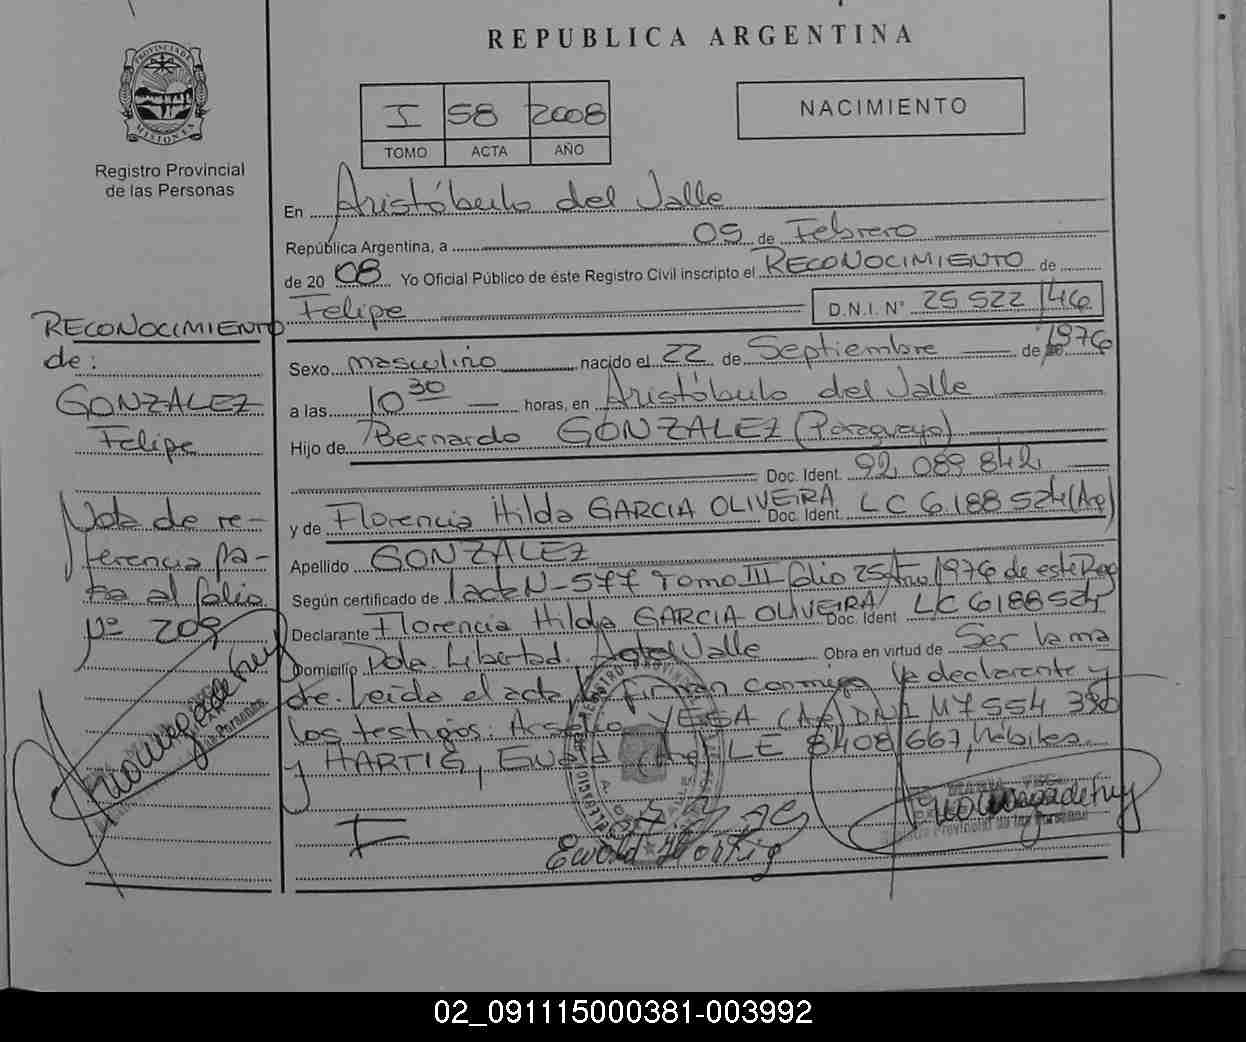 REPUBLICA ARGENTINA
PROVINCIA DE
MISIONES
Registro Provincial
de las Personas
I 58 2008
TOMO ACTA AÑO
NACIMIENTO
En Aristóbulo del Valle
República Argentina, a 05 de Febrero
de 2008 Yo Oficial Público de éste Registro Civil inscripto el RECONOCIMIENTO de
Felipe D.N.I. N° 25 522 146
Sexo masculino nacido el 22 de Septiembre de 1976
a las 10 30 horas, en Aristóbulo del Valle
Hijo de Bernardo GONZALEZ (Paraguayo)
Doc. Ident. 92 089 842
y de Florencia Hilda GARCIA OLIVEIRA Doc. Ident. LC 6.188 524 (Arg)
Apellido GONZALEZ
Según certificado de acta N-577 Tomo III folio 25 Año 1976 de este Reg
Declarante Florencia Hilda GARCIA OLIVEIRA Doc. Ident LC 6188524
Domicilio Pdla. Libertad. A del Valle Obra en virtud de Ser la ma
dre. Leída el acta, la firman conmigo la declarante y
los testigos: YESSA (Arg) DNI M7 554 380
y HARTIG, Ewald (Arg) LE 8408 667, hábiles
Ewald Hartig
Registro Provincial de las Personas
RECONOCIMIENTO
de:
GONZALEZ
Felipe
Nota de re-
ferencia pa-
ra al folio
Nº 209
02_091115000381-003992